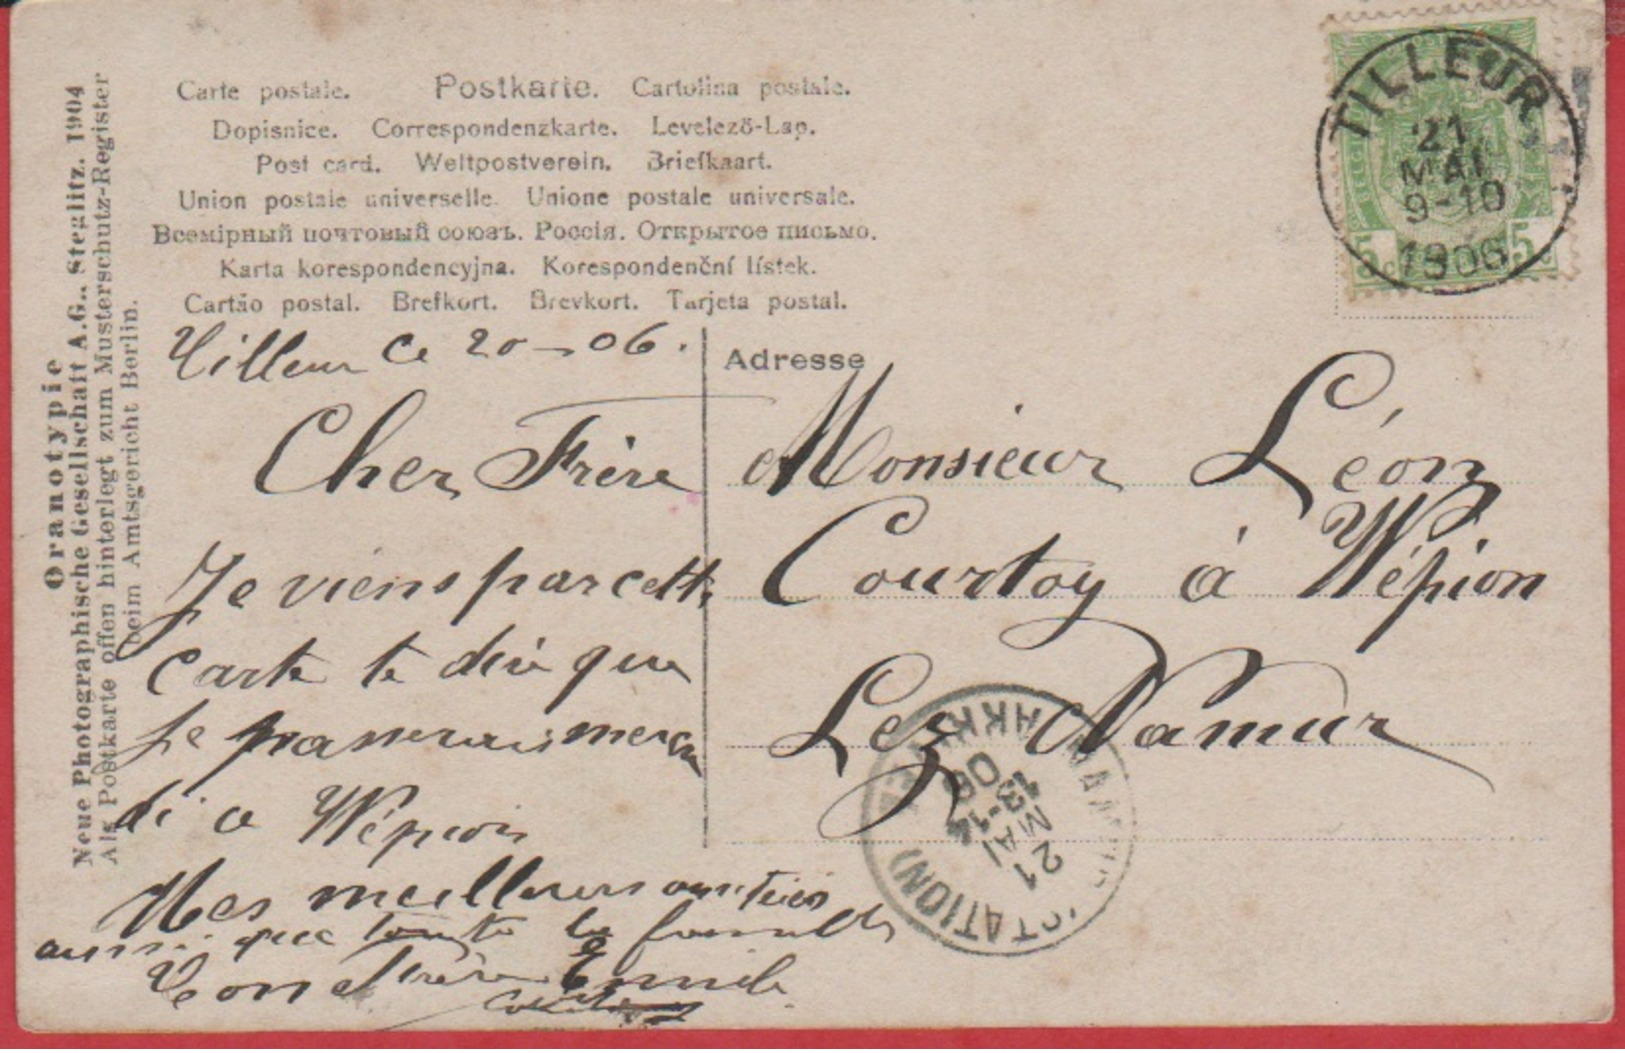 Carte postale. Postkarte. Cartolina postale.
Dopisnice. Correspondenzkarte. Levelező-Lap.
Post card. Weltpostverein. Briefkaart.
Union postale universelle. Unione postale universale.
Всемірный почтовый союзъ. Россія. Открытое письмо.
Karta korespondencyjna. Korespondenční lístek.
Cartão postal. Brefkort. Brevkort. Tarjeta postal.
Oranotypie
Neue Photographische Gesellschaft A.G., Steglitz. 1904
Als Postkarte offen hinterlegt zum Musterschutz-Register
beim Amtsgericht Berlin.
TILLEUR
21
MAI
9-10
1906
5c 5c
Tilleur ce 20 - 06.
Cher Frère
Je viens par cette
carte te dire que
je passerais mercre
di a Wépion
Mes meilleurs amitiés
aussi que toute la famille
Ton Frère Emile
Adresse
Monsieur Léon
Courtoy à Wépion
Lez Namur
(STATION)
21
MAI
13-14
06